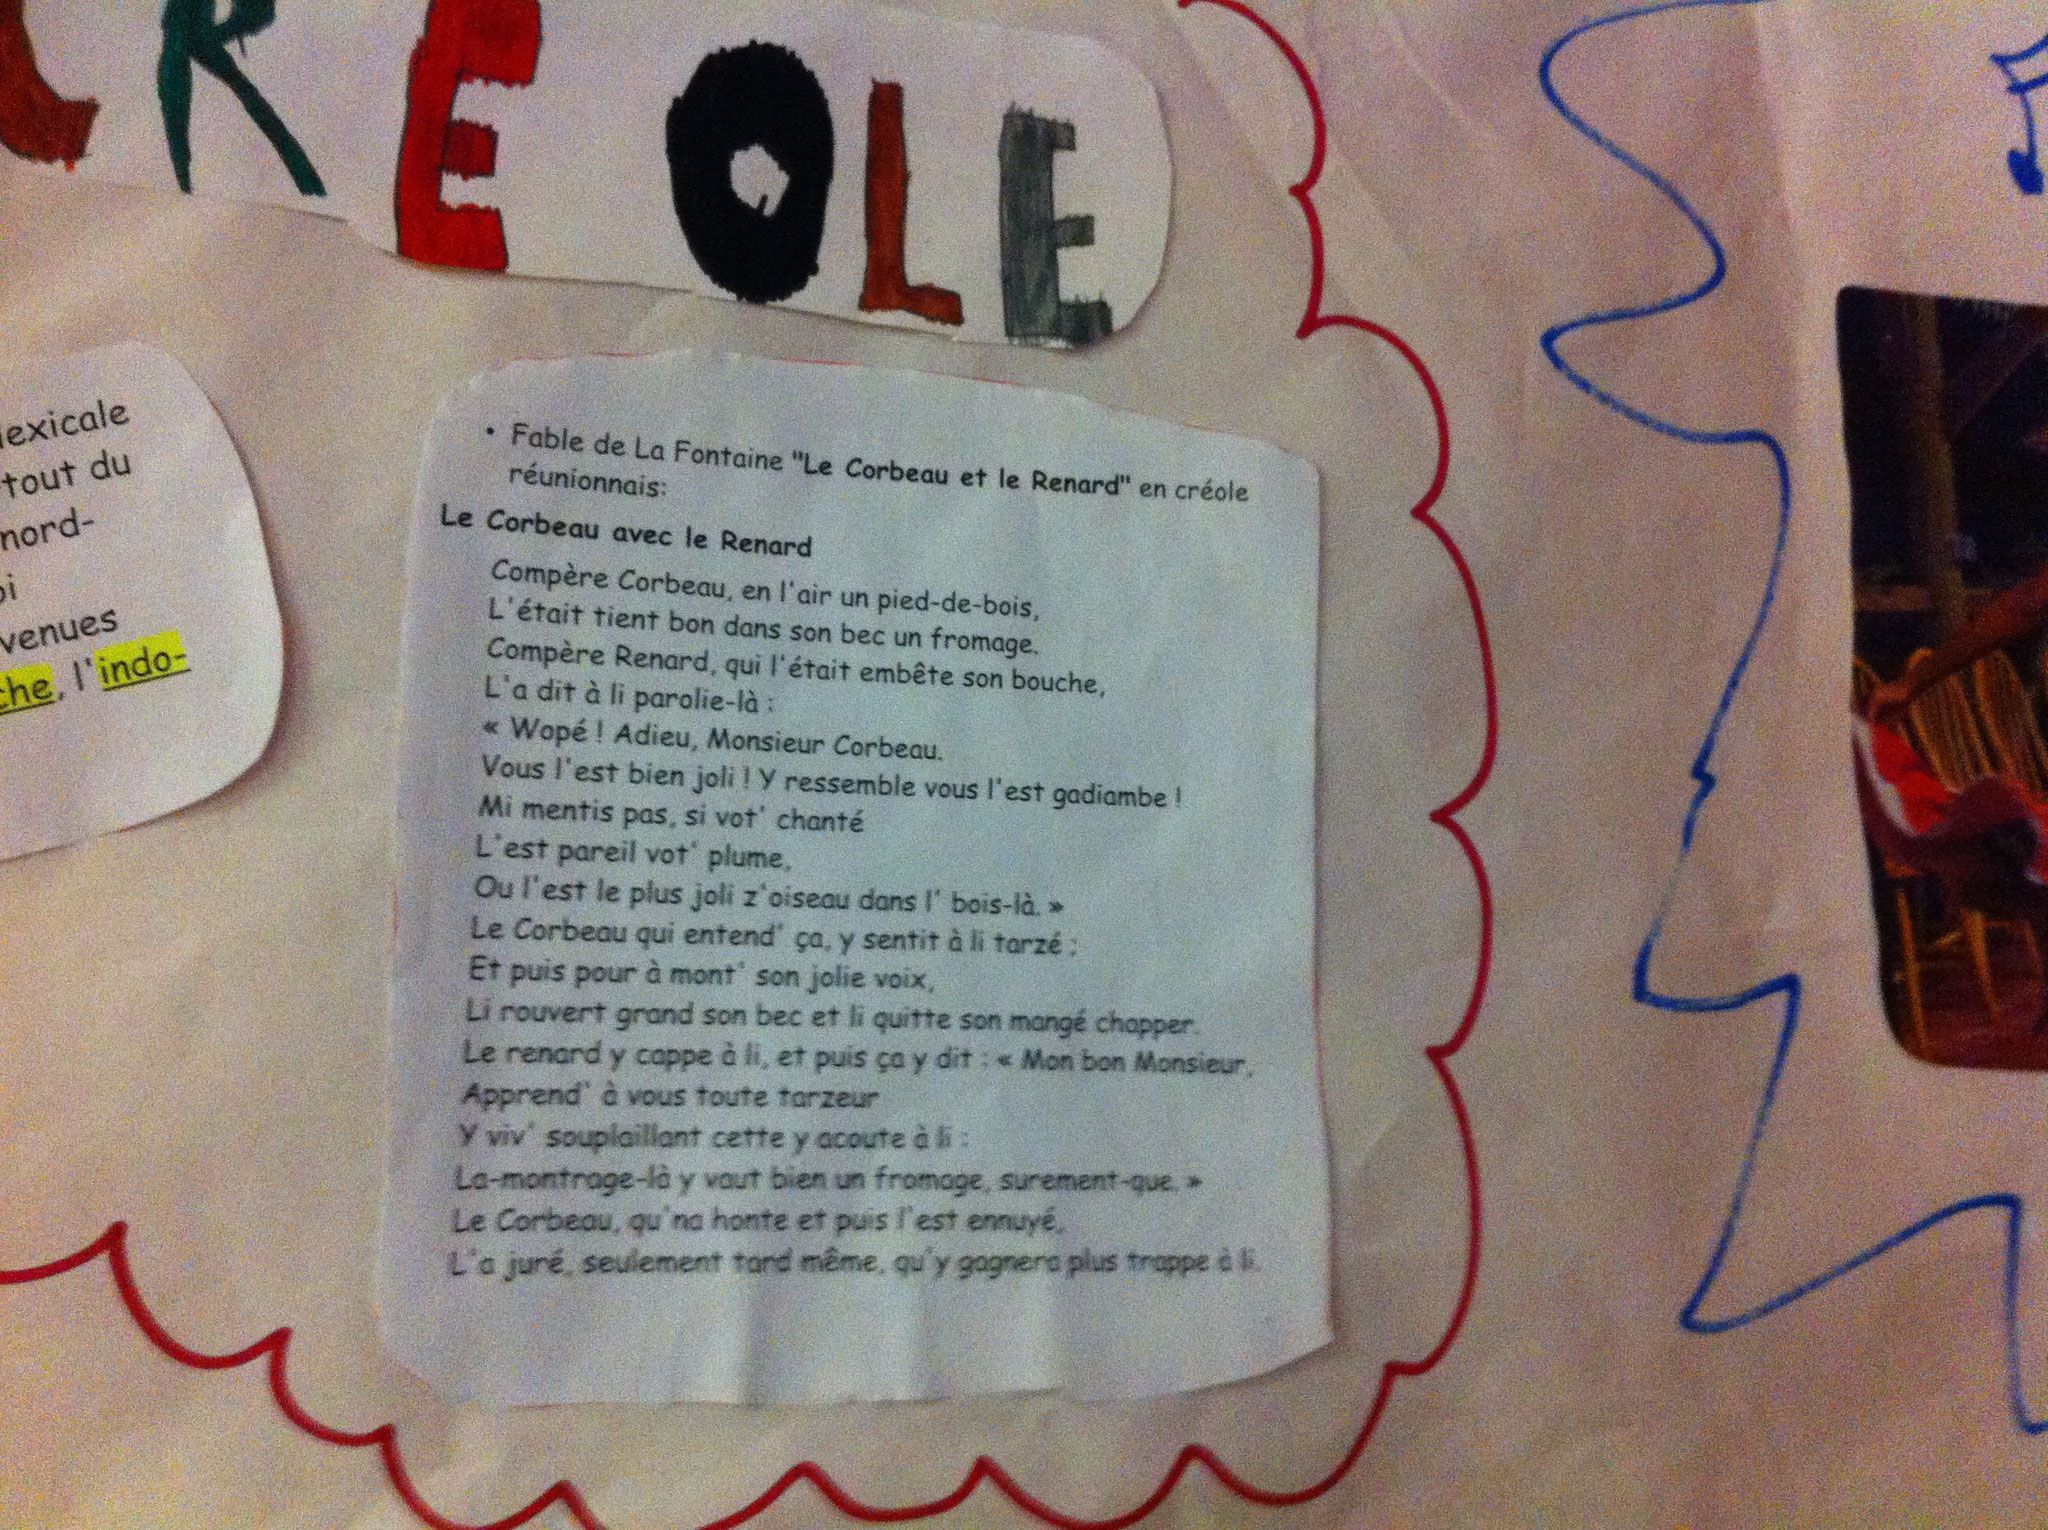 CREOLE
lexicale
tout du
nord-
venues
che, l'indo-
• Fable de La Fontaine "Le Corbeau et le Renard" en créole
réunionnais:
Le Corbeau avec le Renard
Compère Corbeau, en l'air un pied-de-bois,
L'était tient bon dans son bec un fromage.
Compère Renard, qui l'était embête son bouche,
L'a dit à li parolie-là :
« Wopé ! Adieu, Monsieur Corbeau.
Vous l'est bien joli ! Y ressemble vous l'est gadiambe !
Mi mentis pas, si vot' chanté
L'est pareil vot' plume,
Ou l'est le plus joli z'oiseau dans l' bois-là. »
Le Corbeau qui entend' ça, y sentit à li tarzé ;
Et puis pour à mont' son jolie voix,
Li rouvert grand son bec et li quitte son mangé chapper.
Le renard y cappe à li, et puis ça y dit : « Mon bon Monsieur,
Apprend' à vous toute tarzeur
Y viv' souplaillant cette y acoute à li :
La-montrage-là y vaut bien un fromage, surement-que. »
Le Corbeau, qu'na honte et puis l'est ennuyé,
L'a juré, seulement tard même, qu'y gagnera plus trappe à li.